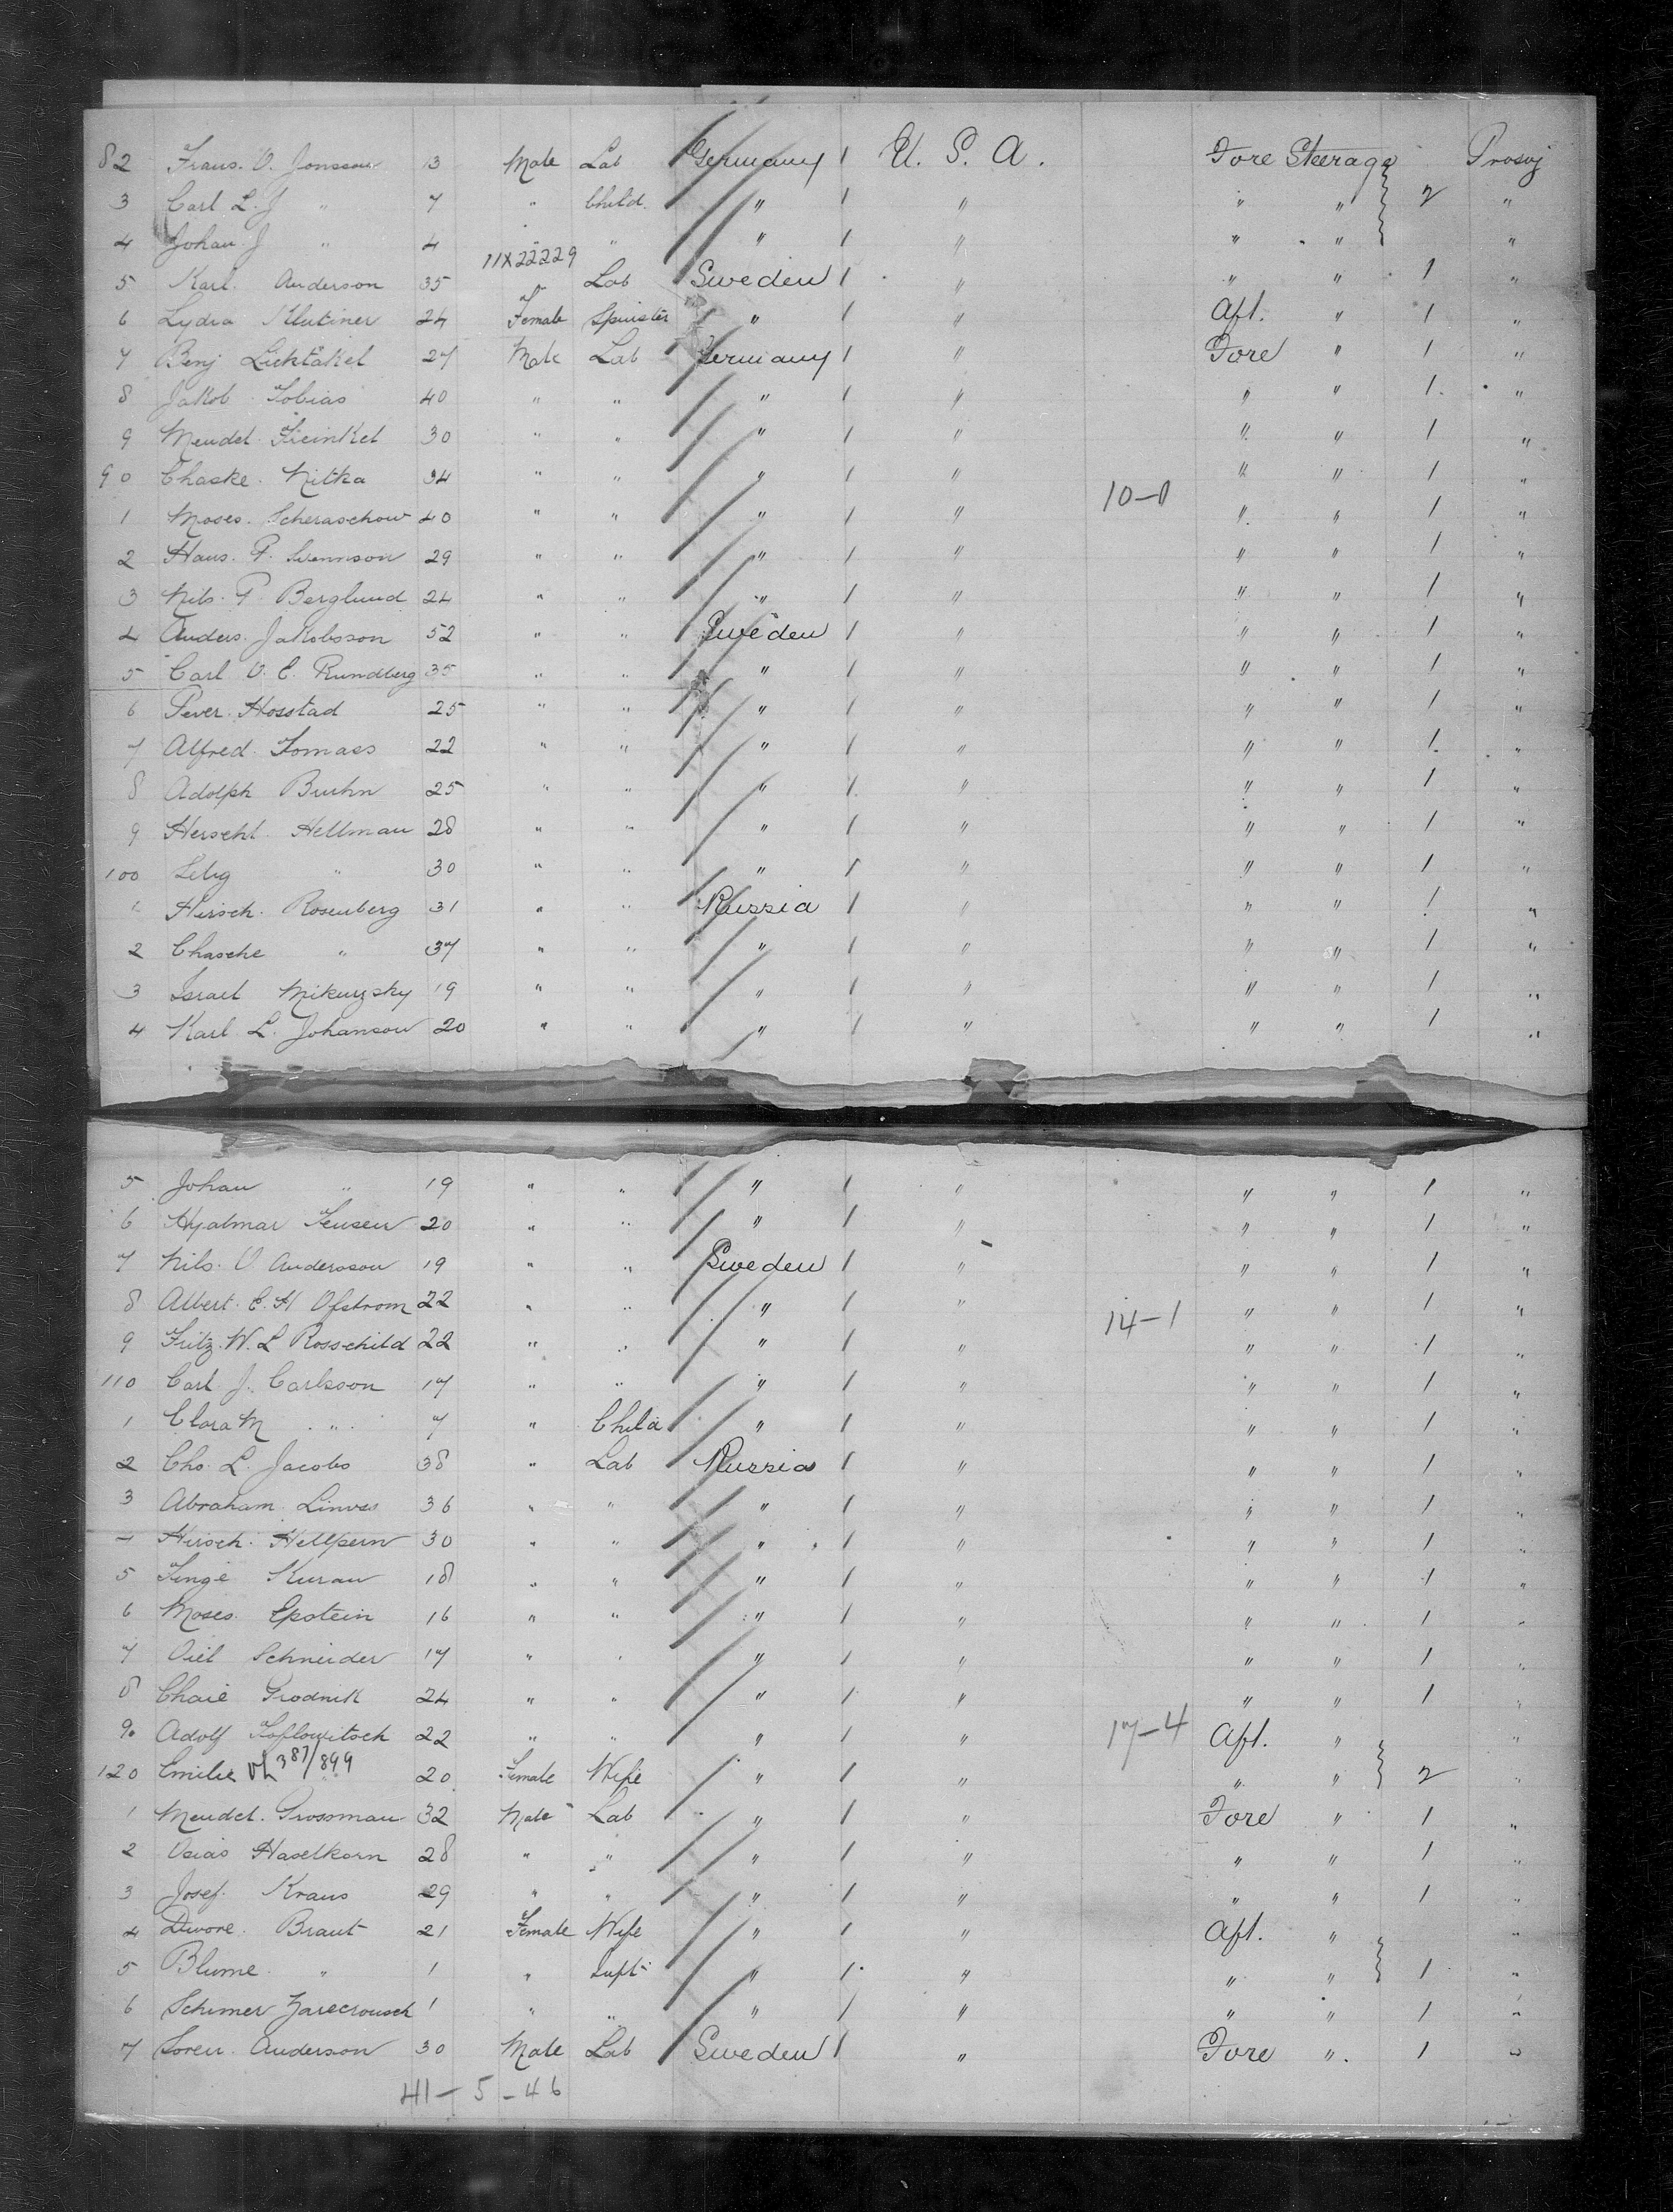 82 Frans. O. Jonsson 13 Male Lab Germany 1 U. S. A. Fore Steerage Prosvj
3 Carl L. J " 7 " Child. " 1 " " " 2 "
4 Johan J " 4 " " " 1 " " " "
11X22229
5 Karl. Anderson 35 Lab Sweden 1 " " " 1 "
6 Lydia Klutiner 24 Female Spinster " 1 " Aft. " 1 "
7 Benj 27 Male Lab Germany 1 " Fore " 1 "
8 Jakob Tobias 40 " " " 1 " " " 1 "
9 Mendel 30 " " " 1 " " " 1 "
90 Chaske. Nitka 34 " " " 1 " " " 1 "
10-0
1 Moses. Scheraschow 40 " " " 1 " " " 1 "
2 Hans. P. Svennson 29 " " " 1 " " " 1 "
3 Nils. P. Berglund 24 " " " 1 " " " 1 "
4 Anders. Jakobsson 52 " " Sweden 1 " " " 1 "
5 Carl O. E. Rundberg 35 " " " 1 " " " 1 "
6 Pever. Hosstad 25 " " " 1 " " " 1 "
7 Alfred. Tomass 22 " " " 1 " " " 1 "
8 Adolph Bruhn 25 " " " 1 " " " 1 "
9 Herschl. Hellman 28 " " " 1 " " " 1 "
100 " 30 " " " 1 " " " 1 "
1 Hirsch. Rosenberg 31 " " Russia 1 " " " 1 "
2 Chasche " 37 " " " 1 " " " 1 "
3 Israel 19 " " " 1 " " " 1 "
4 Karl L. Johanson 20 " " " 1 " " " 1 "
5 Johan " 19 " " " 1 " " " 1 "
6 Hyalmar Jensen 20 " " " 1 " " " 1 "
7 Nils. O Andersson 19 " " Sweden 1 " " " 1 "
8 Albert. E. H Ofstrom 22 " " " 1 " " " 1 "
14-1
9 Fritz. W. L Rosschild 22 " " " 1 " " " 1 "
110 Carl J. Carlsson 17 " " " 1 " " " 1 "
1 Clara M " 7 " Child " 1 " " " 1 "
2 Chs. L. Jacobs 38 " Lab Russia 1 " " " 1 "
3 Abraham 36 " " " 1 " " " 1 "
4 Hirsch. Hellpern 30 " " " 1 " " " 1 "
5 18 " " " 1 " " " 1 "
6 Moses. Epstein 16 " " " 1 " " " 1 "
7 Schneider 17 " " " 1 " " " 1 "
8 Chaie Grodnik 24 " " " 1 " " " 1 "
9 Adolf 22 " " " 1 " 17-4 Aft. " "
120 Emilie 387/899 20 Female Wife " 1 " " " 2 "
1 Mendel. Grossman 32 Male Lab " 1 " Fore " 1 "
2 Osias Haselkorn 28 " " " 1 " " " 1 "
3 Josef. Kraus 29 " " " 1 " " " 1 "
4 Dwore. Braut 21 Female Wife " 1 " Aft. " "
5 Blume. " 1 " Inft " 1 " " " 1 "
6 Schimer 1 " " " 1 " " " 1 "
7 Soren. Anderson 30 Male Lab Sweden 1 " Fore " 1 "
41-5-46